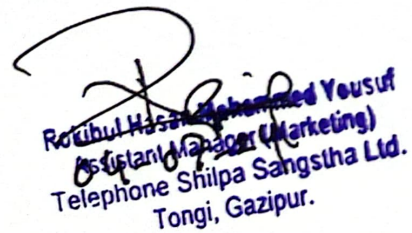 Rokibul Hasan Mohammed Yousuf
Assistant Manager (Marketing)
Telephone Shilpa Sangstha Ltd.
Tongi, Gazipur.